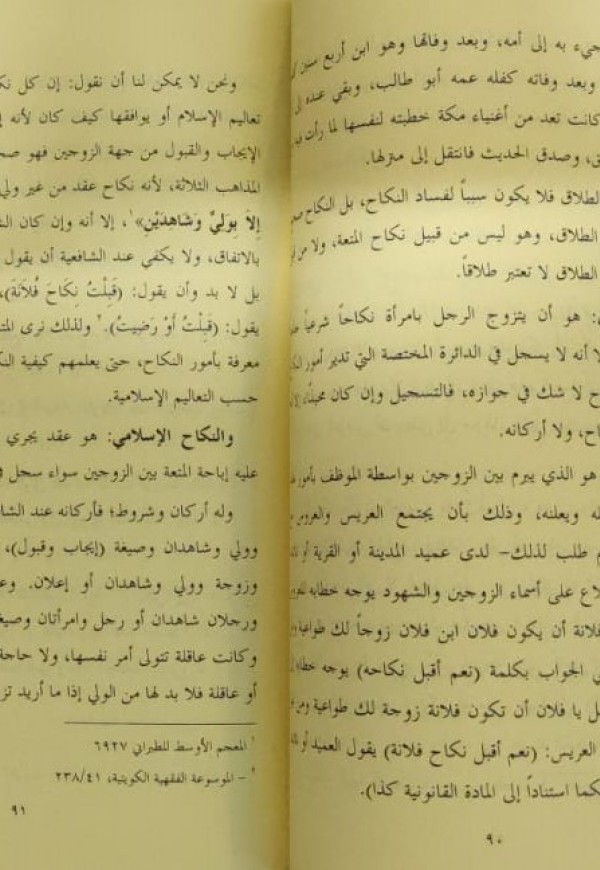 جيء به إلى أمه، وبعد وفاتها وهو ابن أربع سنين
وبعد وفاته كفله عمه أبو طالب، وبقي عنده إلى
كانت تعد من أغنياء مكة خطبته لنفسها لما رأت
ق، وصدق الحديث فانتقل إلى منزلها.
الطلاق فلا يكون سبباً لفساد النكاح، بل النكاح
الطلاق، وهو ليس من قبيل نكاح المتعة، ولا من
الطلاق لا تعتبر طلاقاً.
: هو أن يتزوج الرجل بامرأة نكاحاً شرعياً
لا أنه لا يسجل في الدائرة المختصة التي تدير أمور
ح لا شك في جوازه، فالتسجيل وإن كان
اح، ولا أركانه.
هو الذي يبرم بين الزوجين بواسطة الموظف بأمور
له ويعلنه، وذلك بأن يجتمع العريس والعروس
م طلب لذلك– لدى عميد المدينة أو القرية أو
لاع على أسماء الزوجين والشهود يوجه خطابه
فلانة أن يكون فلان ابن فلان زوجاً لك طواعية
ي الجواب بكلمة (نعم أقبل نكاحه) يوجه خطابه
ل يا فلان أن تكون فلانة زوجة لك طواعية ومن
العريس: (نعم أقبل نكاح فلانة) يقول العميد أو
كما استناداً إلى المادة القانونية كذا).
٩٠
ونحن لا يمكن لنا أن نقول: إن كل
تعاليم الإسلام أو يوافقها كيف كان لأنه
الإيجاب والقبول من جهة الزوجين فهو
المذاهب الثلاثة، لأنه نكاح عقد من غير ولي
إِلا بِوَلِيٍّ وَشَاهِدَيْنِ»¹، إلا أنه وإن كان
بالاتفاق، ولا يكفي عند الشافعية أن يقول
بل لا بد وأن يقول: (قَبِلْتُ نِكَاحَ فُلَانَة)،
يقول: (قَبِلْتُ أَوْ رَضِيتُ).² ولذلك نرى
معرفة بأمور النكاح، حتى يعلمهم كيفية
حسب التعاليم الإسلامية.
والنكاح الإسلامي: هو عقد يجري
عليه إباحة المتعة بين الزوجين سواء سجل
وله أركان وشروط؛ فأركانه عند
وولي وشاهدان وصيغة (إيجاب وقبول)،
وزوجة وولي وشاهدان أو إعلان.
ورجلان شاهدان أو رجل وامرأتان
وكانت عاقلة تتولى أمر نفسها، ولا حاجة
أو عاقلة فلا بد لها من الولي إذا ما أريد
¹ المعجم الأوسط للطبراني ٦٩٢٧
² – الموسوعة الفقهية الكويتية، ٢٣٨/٤١
٩١